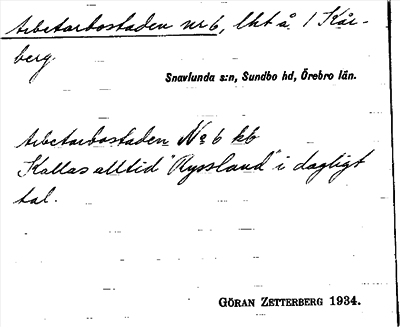 Arbetarbostaden nr 6, lht å. 1 Kår-
berg.
Snavlunda s:n, Sundbo hd, Örebro län.
Arbetarbostaden No 6 kb
Kallas alltid "Ryssland" i dagligt
tal.
GÖRAN ZETTERBERG 1934.